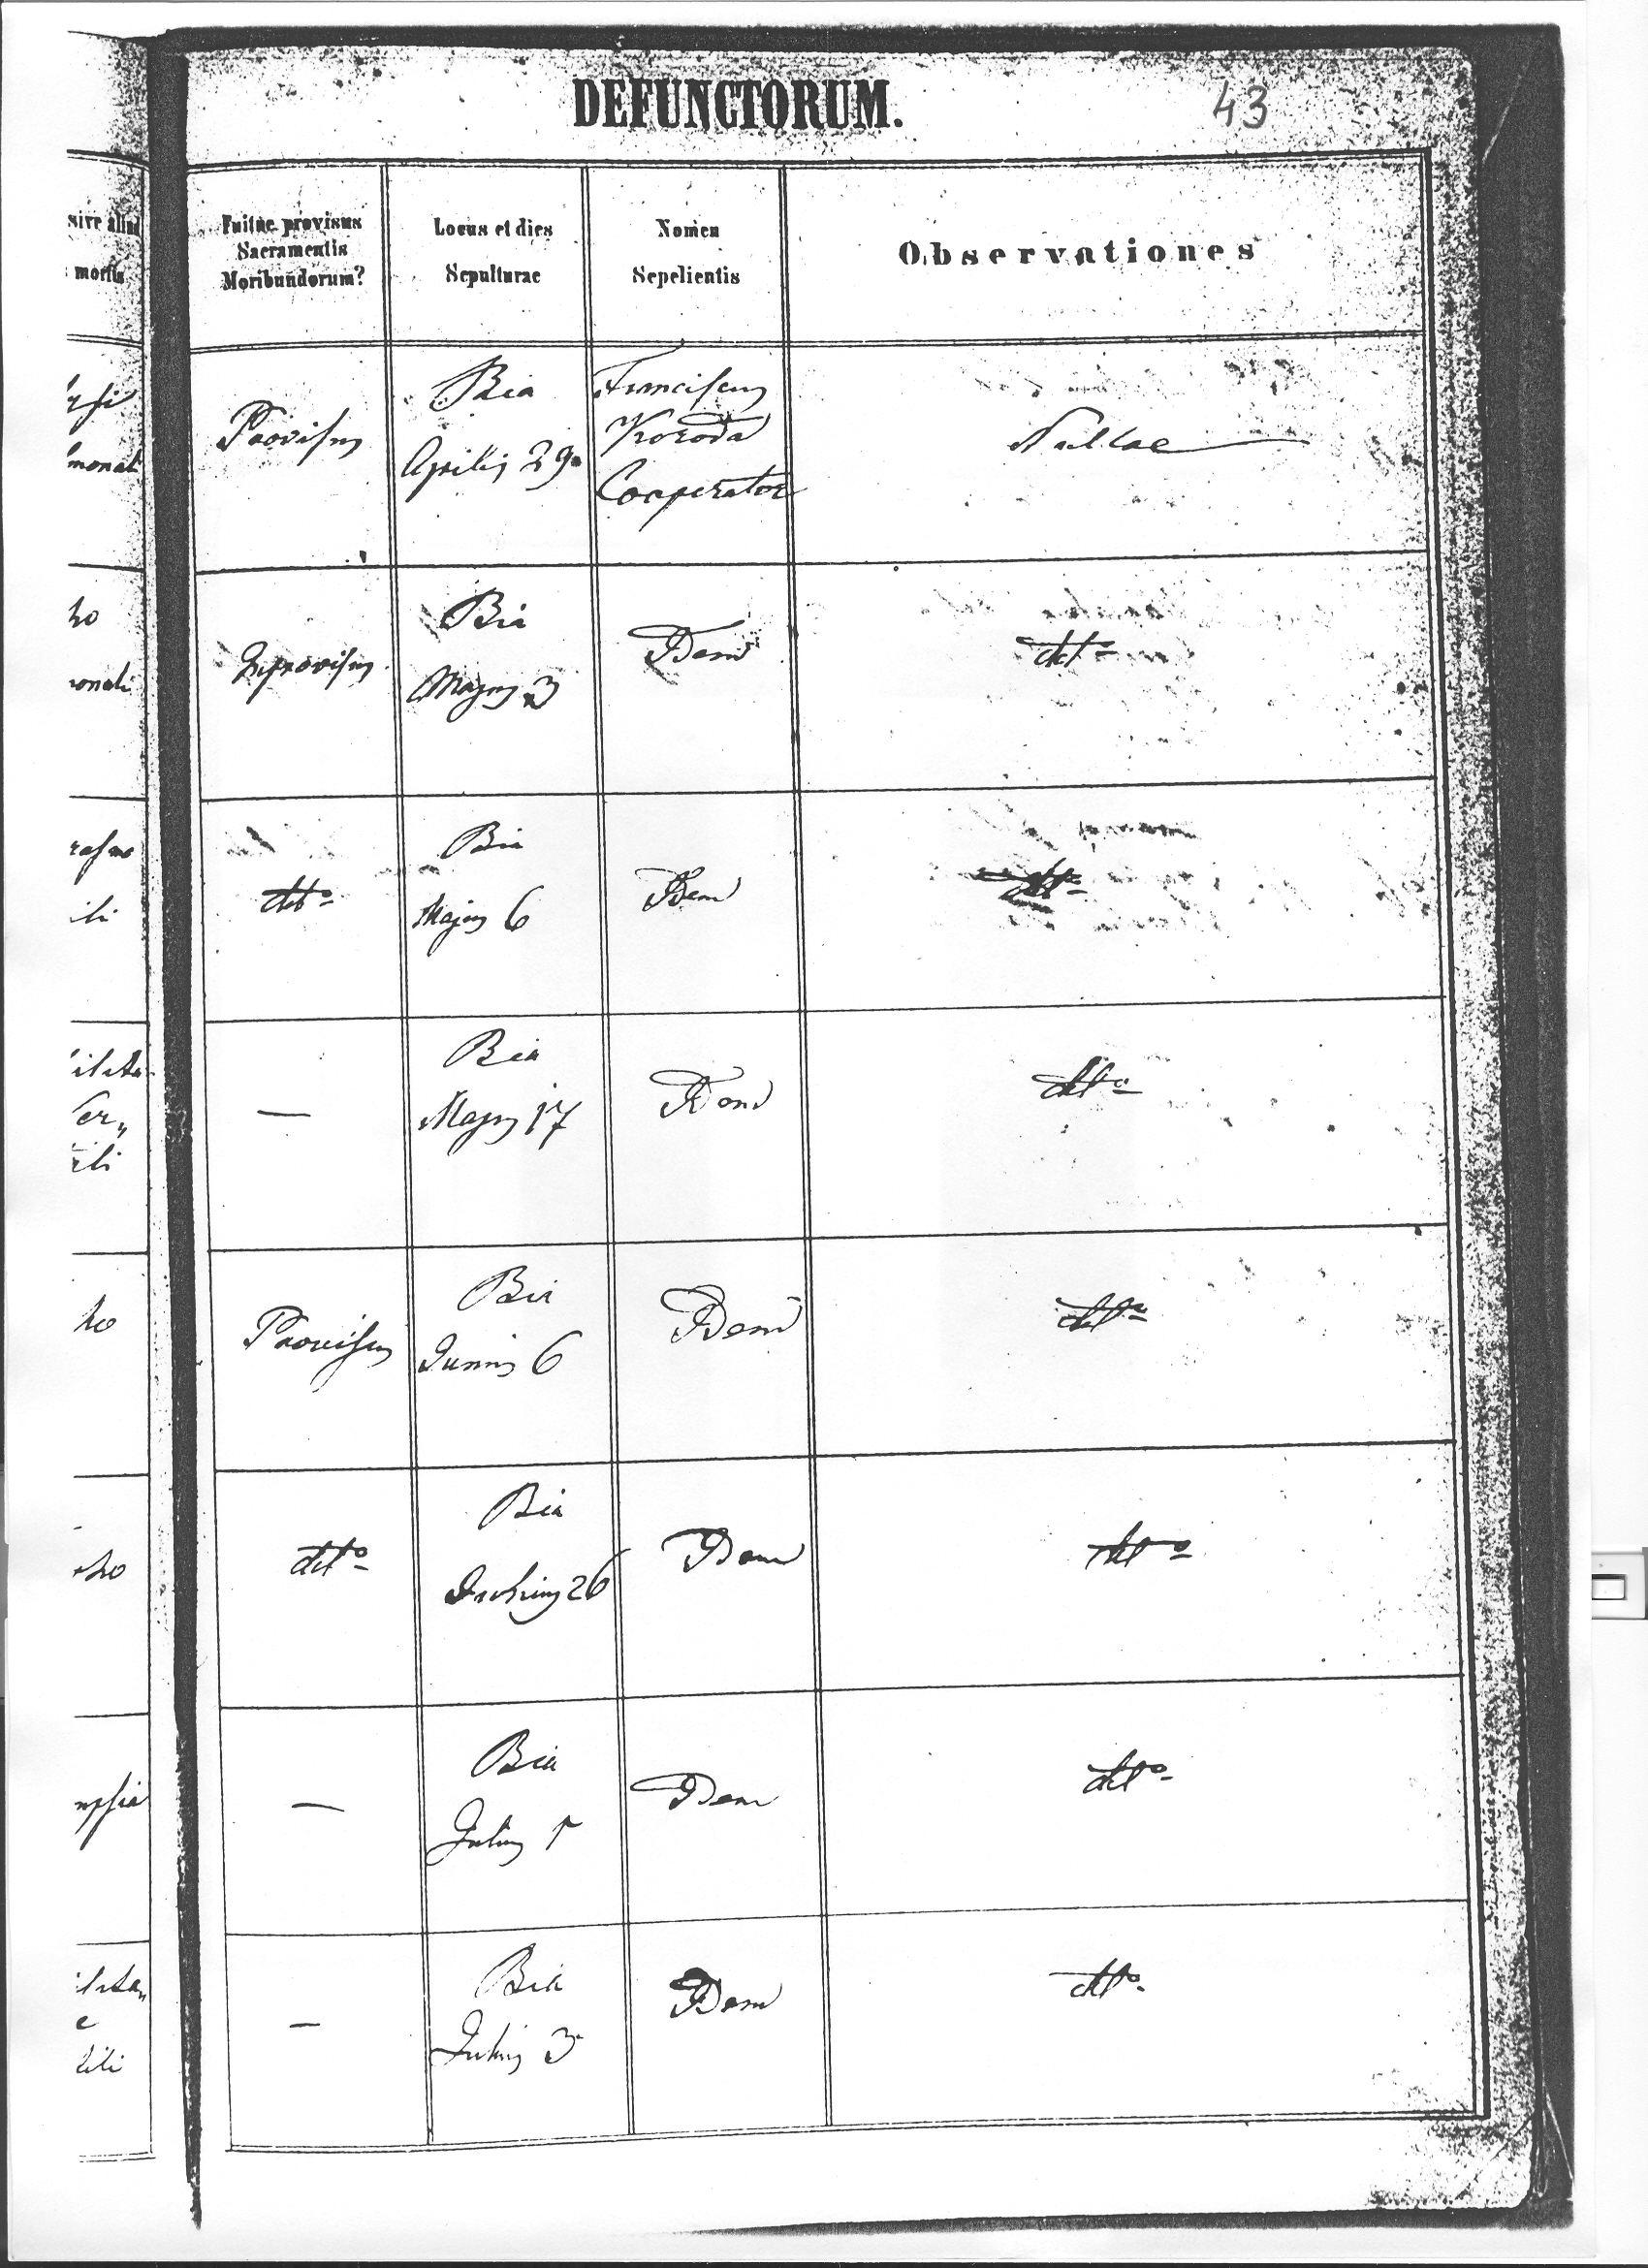 DEFUNCTORUM.
43
sive aliud
mortis
Fuitne provisus
Sacramentis
Moribundorum?
Locus et dies
Sepulturae
Nomen
Sepelientis
Observationes
Provisus
Bia
Aprilis 29
Franciscus
Koroda
Cooperator
Nullae
Improvisus
Bia
Majus 3
Idem
dtto
dtto
Bia
Majus 6
Idem
dtto
—
Bia
Majus 17
Idem
dtto
Provisus
Bia
Junius 6
Idem
dtto
dtto
Bia
Junius 26
Idem
dtto
—
Bia
Julius 1
Idem
dtto
—
Bia
Julius 3
Idem
dtto